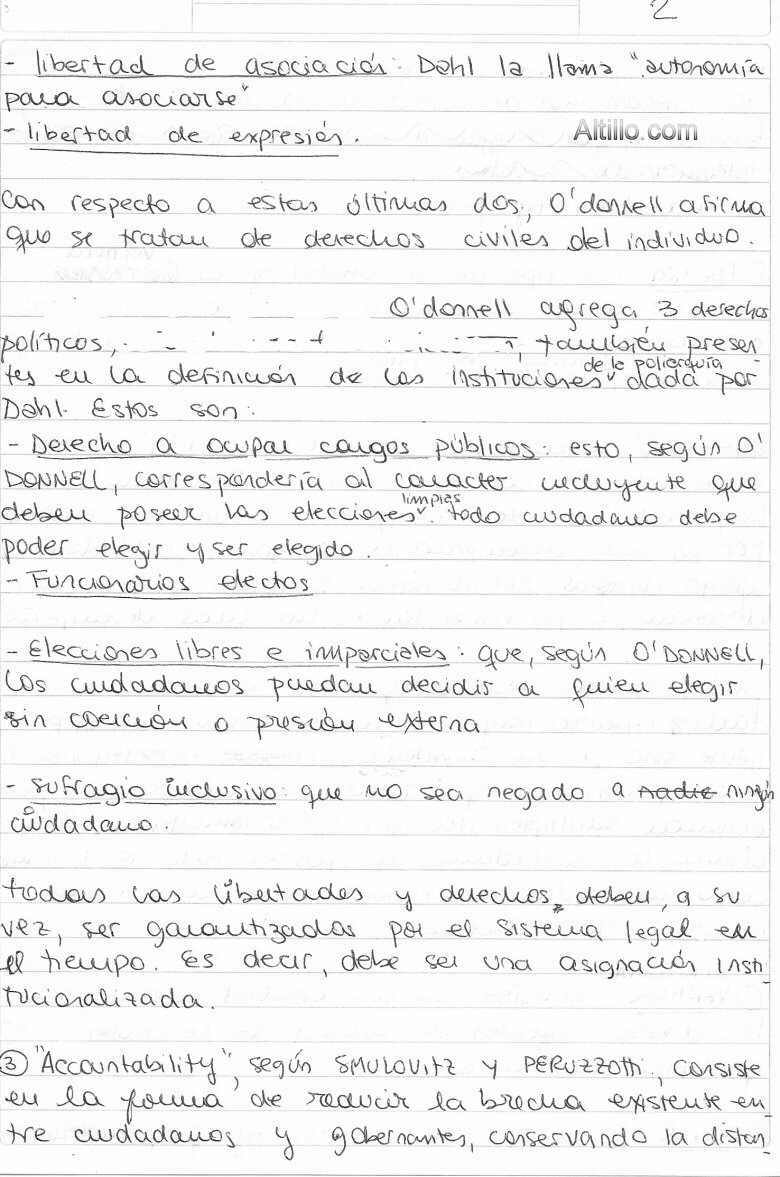 2
- libertad de asociación: Dahl la llama "autonomía
para asociarse"
- libertad de expresión.
Altillo.com
Con respecto a estas últimas dos, O'donnell afirma
que se tratan de derechos civiles del individuo.
O'donnell agrega 3 derechos
políticos, también presen-
de la poliarquía
tes en la definición de las instituciones dada por
Dahl. Estos son:
- Derecho a ocupar cargos públicos: esto, según O'
DONNELL, correspondería al caracter incluyente que
limpias
deben poseer las elecciones. todo ciudadano debe
poder elegir y ser elegido.
- Funcionarios electos
- Elecciones libres e imparciales: que, según O'DONNELL,
los ciudadanos puedan decidir a quien elegir
sin coerción o presión externa
- sufragio inclusivo: que no sea negado a nadie ningún
ciudadano.
todas las libertades y derechos, deben, a su
vez, ser garantizados por el sistema legal en
el tiempo. Es decir, debe ser una asignación insti
tucionalizada.
③ "Accountability", según SMULOVITZ y PERUZZOTTI, consiste
en la forma de reducir la brecha existente en
tre ciudadanos y gobernantes, conservando la distan